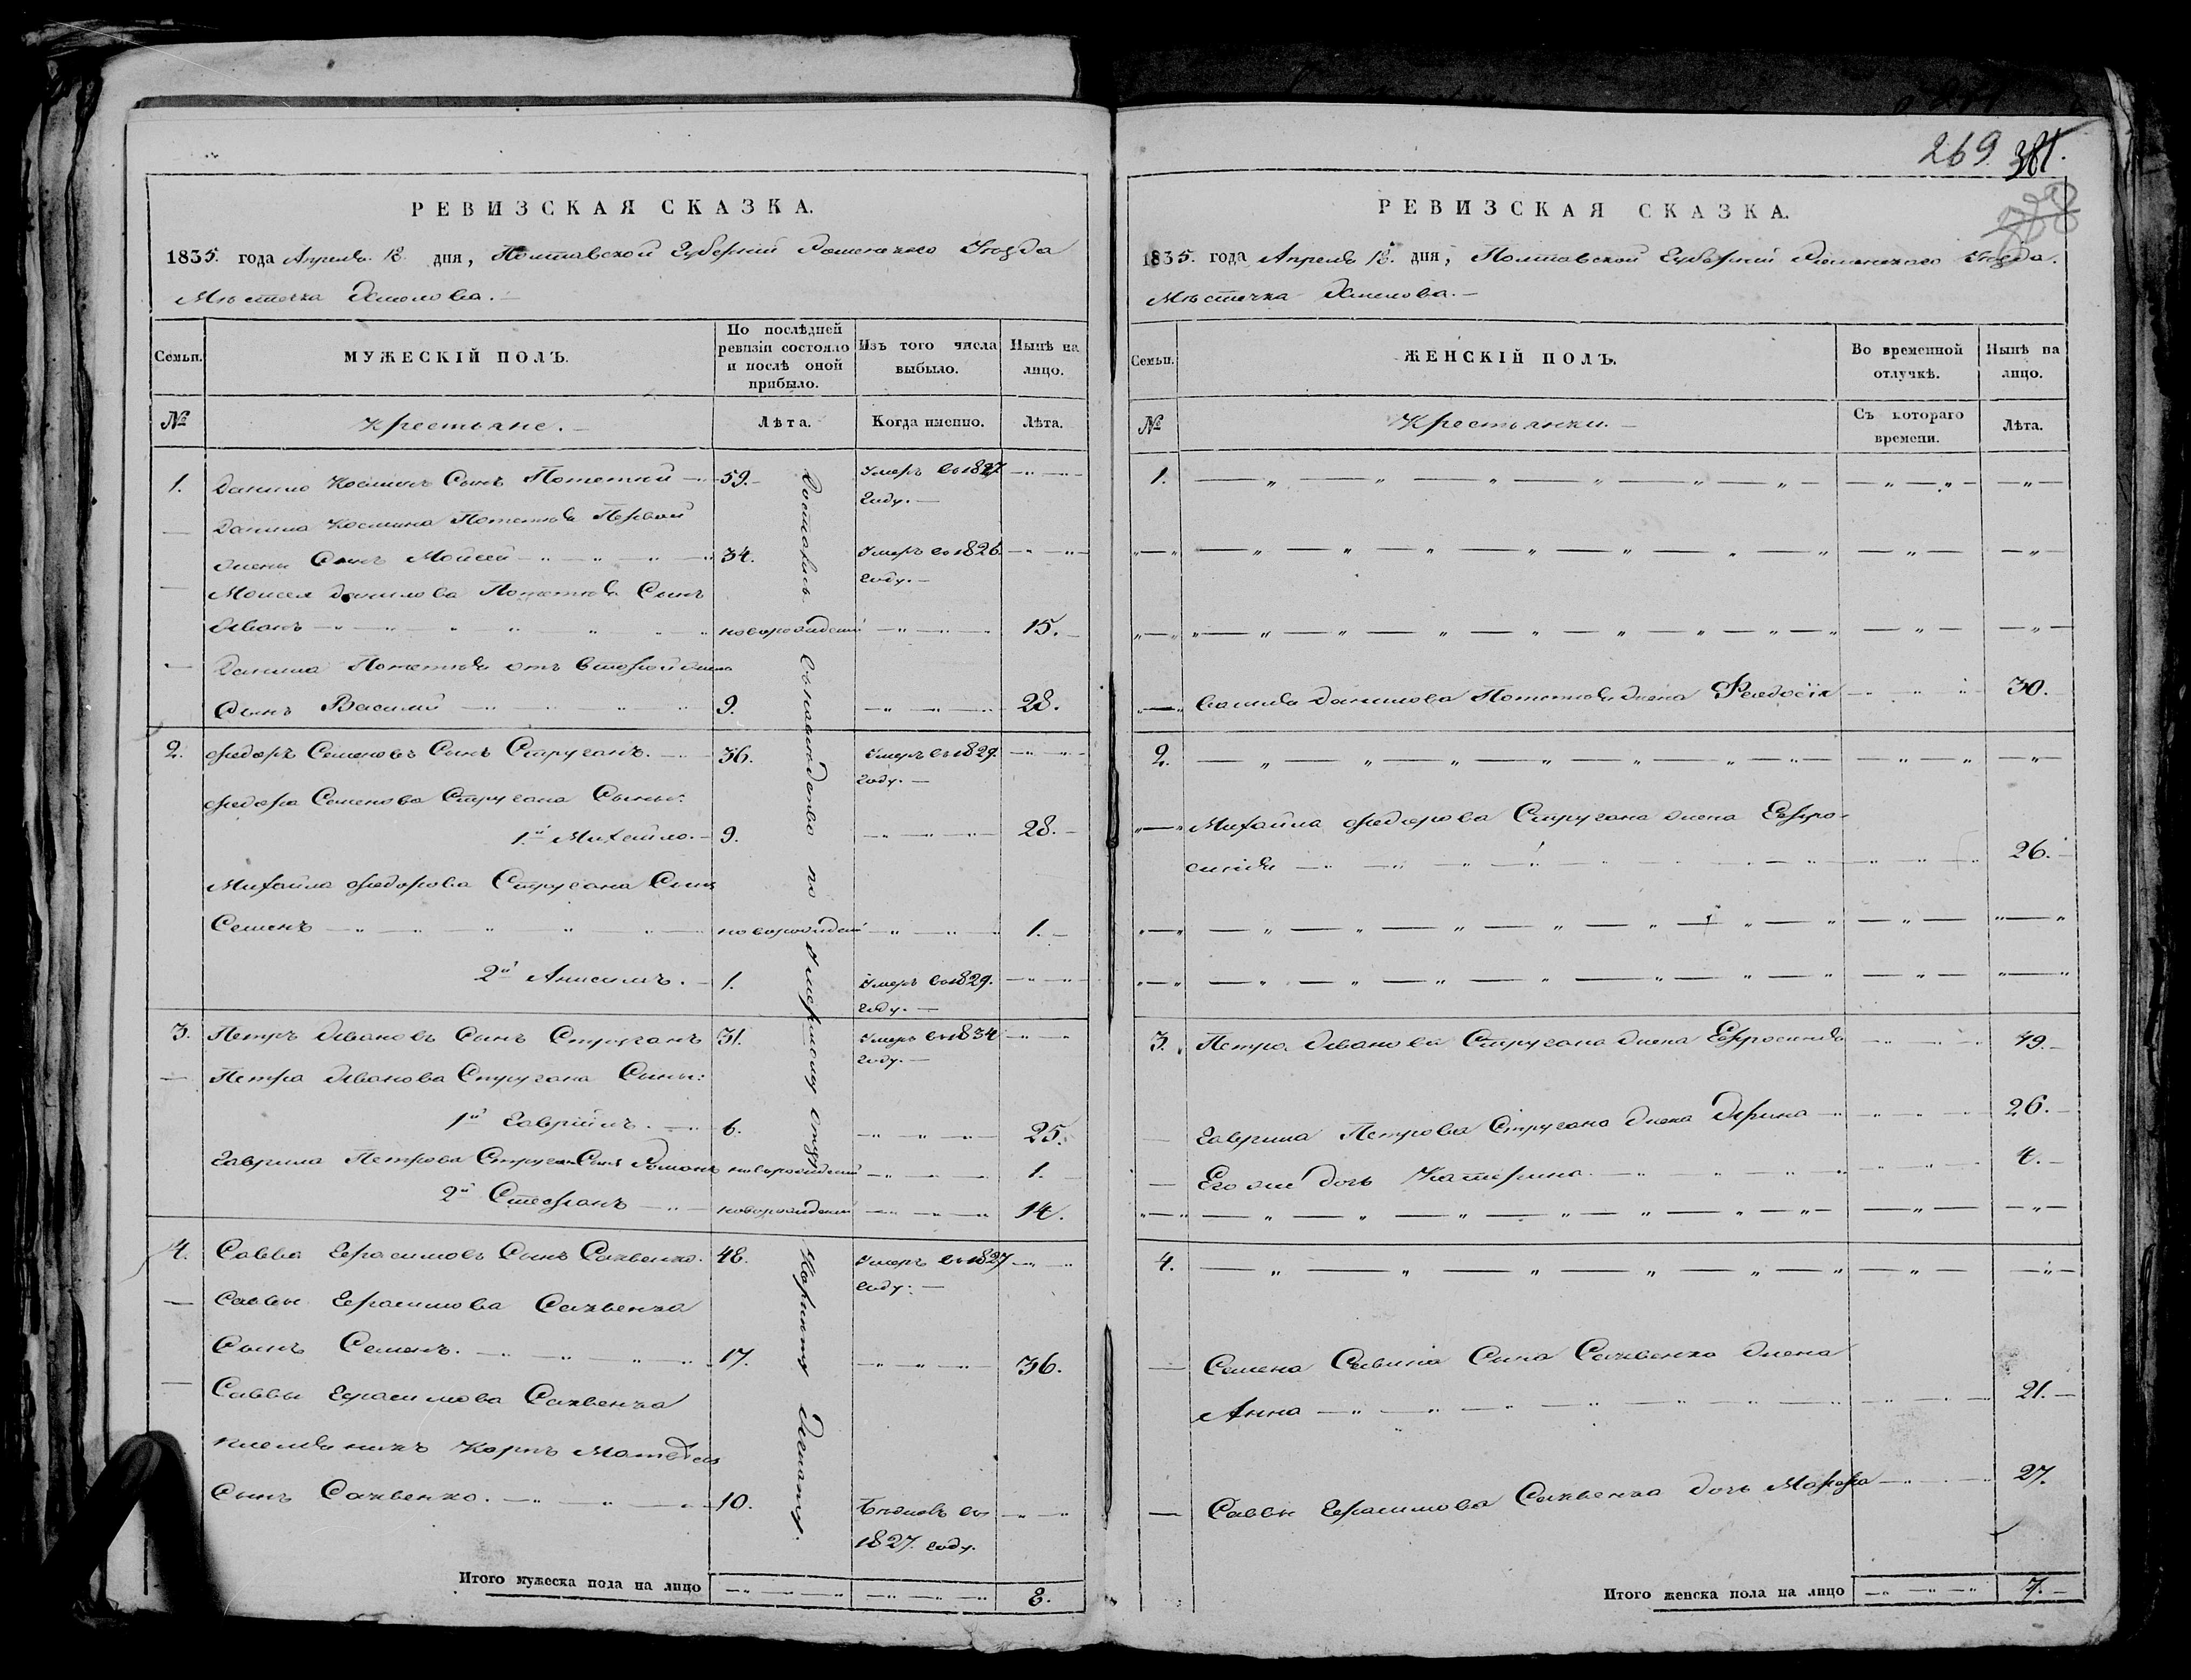 РЕВИЗСКАЯ СКАЗКА.
1835. года Апреля 18. дня, Полтавской Губерніи Роменскаго Уѣзда
Мѣстечка Хмелова. —
Семьи.
МУЖЕСКІЙ ПОЛЪ.
По послѣдней ревизіи состояло и послѣ оной прибыло.
Изъ того числа выбыло.
Нынѣ на лицо.
№
Крестьяне. —
Лѣта.
Когда именно.
Лѣта.
1. Данило Косминъ Сынъ 59. Умеръ въ 1827
году. —
Данила Космина Первой
жены Сынъ Мойсей 34. Умеръ въ 1826.
году. —
Моисея Данилова Сынъ
Иванъ новорожденный 15.
Данила отъ второй жены
Сынъ Василий 9. 28.
2. Федоръ Семеновъ Сынъ Стругань. 36. Умеръ въ 1829.
году. —
Федора Семенова Стругана Сыны:
1й Михайло. 9. 28.
Михайла Федорова Стругана Сынъ
Семенъ новорожденный 1.
2й Анисимъ. 1. Умеръ въ 1829.
году. —
3. Петръ Ивановъ Сынъ Струганъ 31. Умеръ въ 1834
году. —
Петра Иванова Стругана Сыны:
1й Гавріилъ. 6. 25.
Гаврила Петрова Стругана Сынъ Романъ новорожденный 1.
2й Стефанъ новорожденный 14.
4. Савва Герасимовъ Сынъ Сахвенко. 48. Умеръ въ 1827
году. —
Саввы Герасимова Сахвенка
Сынъ Семенъ. 17. 36.
Саввы Герасимова Сахвенка
племянникъ Карпъ Матвѣевъ
Сынъ Сахвенко. 10. въ
1827. году.
Достались по умершому отцу
Итого мужеска пола на лицо 8.
269. 381.
РЕВИЗСКАЯ СКАЗКА.
1835. года Апреля 18. дня, Полтавской Губерніи Роменскаго Уѣзда.
Мѣстечка Хмелова. —
Семьи.
ЖЕНСКІЙ ПОЛЪ.
Во временной отлучкѣ.
Нынѣ на лицо.
№
Крестьянки. —
Съ котораго времени.
Лѣта.
1.
Василия Данилова жена Феодосія 30.
2.
Михайла Федорова Стругана жена Ефро-
синія 26.
3. Петра Иванова Стругана жена Ефросинія 49.
Гаврила Петрова Стругана жена Ирина 26.
Его же дочь Катерина 4.
4.
Семена Савина Сына Сахвенка жена
Анна 21.
Саввы Герасимова Сахвенка дочь 27.
Итого женска пола на лицо 7.